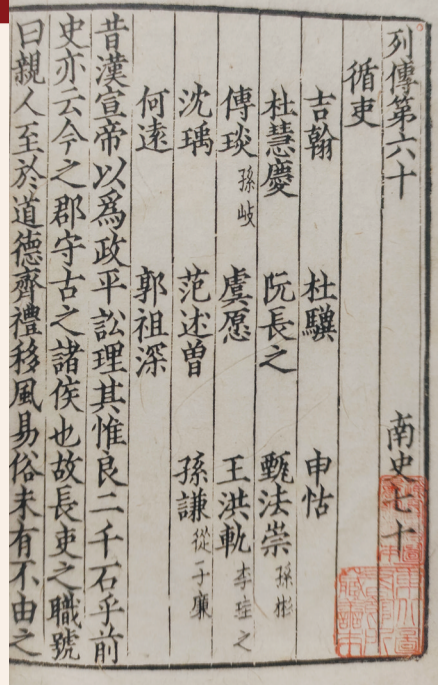 列傳第六十 南史七十
循吏
吉翰 杜驥 申恬
杜慧慶 阮長之 甄法崇 孫彬
傅琰 孫岐 虞愿 王洪軌 李珪之
沈瑀 范述曾 孫謙 從子廉
何遠 郭祖深
昔漢宣帝以爲政平訟理其惟良二千石乎前
史亦云今之郡守古之諸侯也故長吏之職號
曰親人至於道德齊禮移風易俗未有不由之